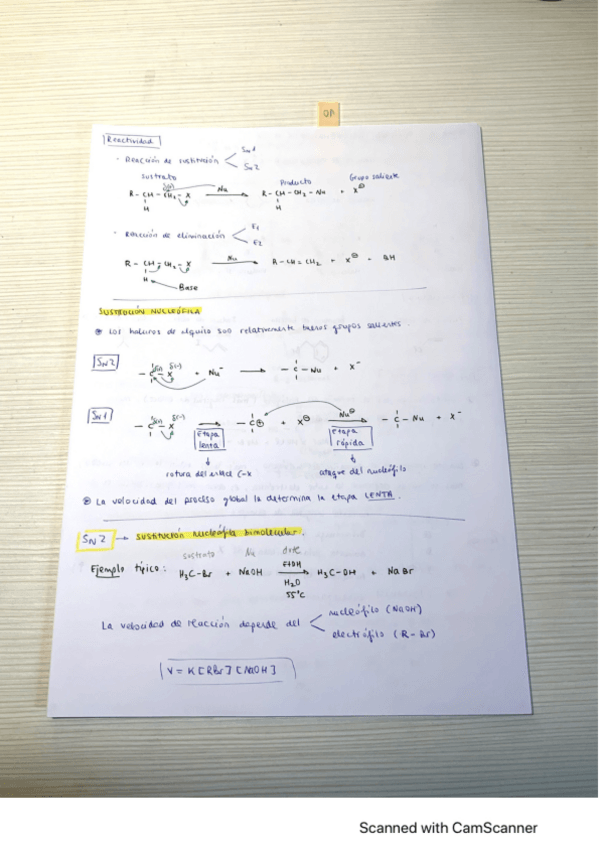 Reactividad
· Reacción de sustitución < SN1
SN2
sustrato Producto Grupo saliente
R - CH - CH2 - X Nu → R - CH - CH2 - Nu + X⊖
H H
· Reacción de eliminación < E1
E2
R - CH - CH2 - X Nu → R - CH = CH2 + X⊖
H Base
SUSTITUCIÓN NUCLEÓFILA
Los haluros de alquilo son relativamente buenos grupos salientes.
SN2 - C - X + Nu⁻ → - C - Nu + X⁻
δ(+) δ(-)
SN1 - C - X → - C⊕ + X⊖ Nu⊖ → - C - Nu + X⁻
δ(+) δ(-)
Etapa lenta Etapa rápida
rotura del enlace C-X ataque del nucleófilo
La velocidad del proceso global la determina la etapa LENTA.
SN2 → sustitución nucleófila bimolecular.
sustrato Nu
Ejemplo típico: H3C-Br + NaOH EtOH → H3C-OH + NaBr
H2O
55°C
La velocidad de reacción depende del < nucleófilo (NaOH)
electrófilo (R-Br)
V = K [RBr] [NaOH]
Scanned with CamScanner